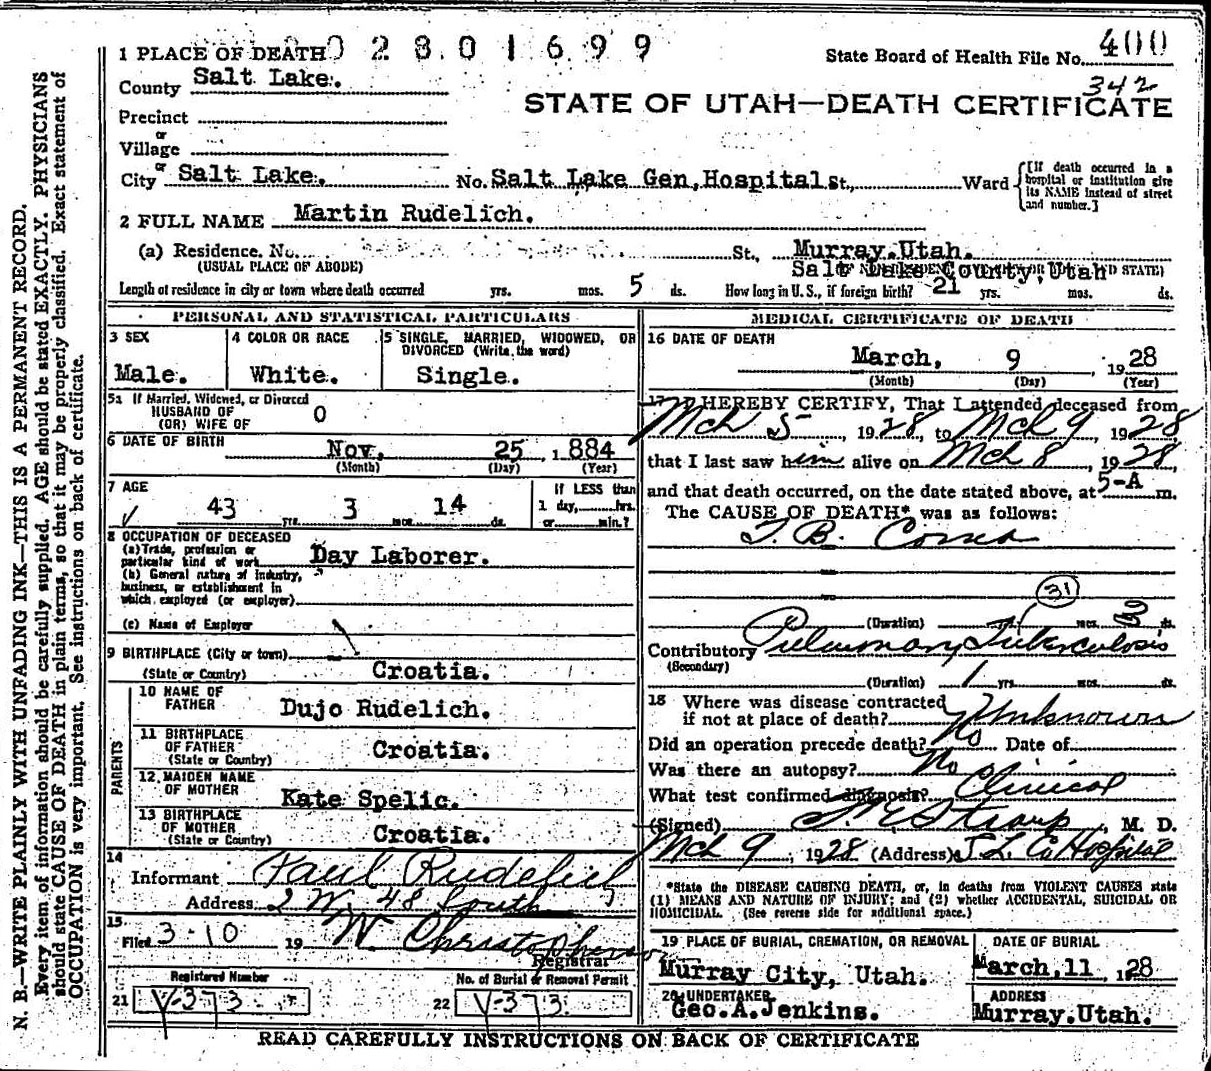 N. B.—WRITE PLAINLY WITH UNFADING INK—THIS IS A PERMANENT RECORD.
Every item of information should be carefully supplied. AGE should be stated EXACTLY. PHYSICIANS
should state CAUSE OF DEATH in plain terms, so that it may be properly classified. Exact statement of
OCCUPATION is very important. See instructions on back of certificate.
1 PLACE OF DEATH 0 2 8 0 1 6 9 9
State Board of Health File No. 400
342
County Salt Lake.
STATE OF UTAH—DEATH CERTIFICATE
Precinct
or
Village
or
City Salt Lake. No. Salt Lake Gen, Hospital St., Ward
[If death occurred in a
hospital or institution give
its NAME instead of street
and number.]
2 FULL NAME Martin Rudelich.
(a) Residence. No. St., Murray.Utah.
(USUAL PLACE OF ABODE) Salt Lake County, Utah STATE)
Length of residence in city or town where death occurred yrs. mos. 5 ds. How long in U. S., if foreign birth? 21 yrs. mos. ds.
PERSONAL AND STATISTICAL PARTICULARS
3 SEX
Male.
4 COLOR OR RACE
White.
5 SINGLE, MARRIED, WIDOWED, OR
DIVORCED (Write the word)
Single.
5a If Married, Widowed, or Divorced
HUSBAND OF
(OR) WIFE OF 0
6 DATE OF BIRTH
Nov, 25 , 1 884
(Month) (Day) (Year)
7 AGE
43 yrs. 3 mos. 14 ds.
If LESS than
1 day, hrs.
or min.?
8 OCCUPATION OF DECEASED
(a) Trade, profession or
particular kind of work Day Laborer.
(b) General nature of Industry,
business, or establishment in
which employed (or employer)
(c) Name of Employer
9 BIRTHPLACE (City or town)
(State or Country) Croatia.
PARENTS
10 NAME OF
FATHER Dujo Rudelich.
11 BIRTHPLACE
OF FATHER
(State or Country) Croatia.
12 MAIDEN NAME
OF MOTHER
Kate Spelic.
13 BIRTHPLACE
OF MOTHER
(State or Country) Croatia.
14
Informant Paul Rudelich
Address 2 W. 48 South
15
Filed 3-10 19 W Christopherson
Registrar
Registered Number
21 V-373
No. of Burial or Removal Permit
22 V-373
MEDICAL CERTIFICATE OF DEATH
16 DATE OF DEATH
March, 9 , 19 28
(Month) (Day) (Year)
17 I HEREBY CERTIFY, That I attended deceased from
Mch 5 , 19 28, to Mch 9 , 19 28,
that I last saw him alive on Mch 8 , 19 28,
and that death occurred, on the date stated above, at 5-A m.
The CAUSE OF DEATH* was as follows:
T. B. Coma
31
(Duration) mos. ds.
Contributory Pulmonary Tuberculosis
(Secondary)
(Duration) 1 yrs. mos. ds.
18 Where was disease contracted
if not at place of death? Unknown
Did an operation precede death? No Date of
Was there an autopsy? No
What test confirmed diagnosis? Clinical
(Signed) , M. D.
Mch 9 , 19 28 (Address) S L Co Hospital
*State the DISEASE CAUSING DEATH, or, in deaths from VIOLENT CAUSES state
(1) MEANS AND NATURE OF INJURY; and (2) whether ACCIDENTAL, SUICIDAL OR
HOMICIDAL. (See reverse side for additional space.)
19 PLACE OF BURIAL, CREMATION, OR REMOVAL
Murray City, Utah.
DATE OF BURIAL
March,11 , 19 28
20 UNDERTAKER
Geo.A.Jenkins.
ADDRESS
Murray.Utah.
READ CAREFULLY INSTRUCTIONS ON BACK OF CERTIFICATE